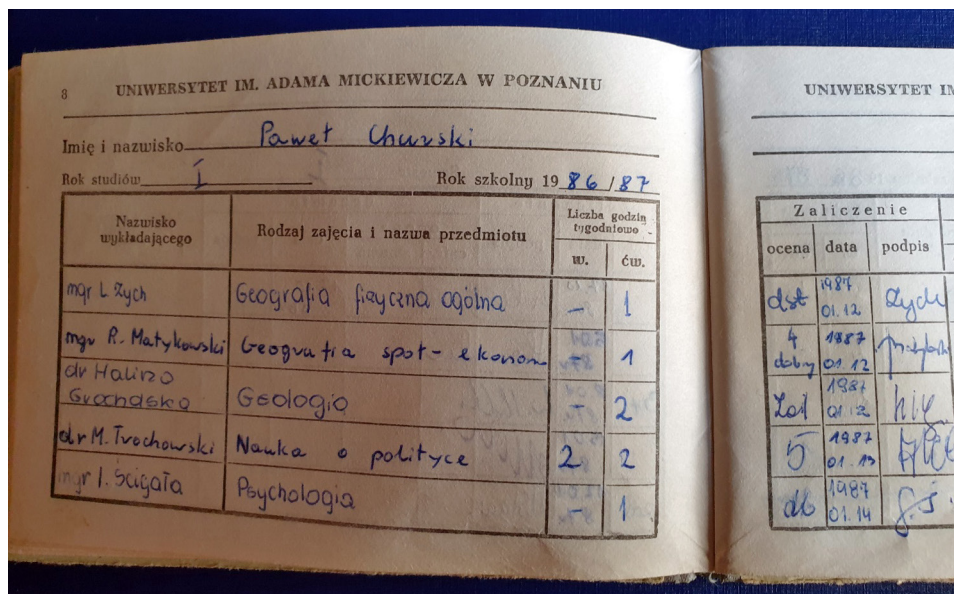 8 UNIWERSYTET IM. ADAMA MICKIEWICZA W POZNANIU
Imię i nazwisko Paweł Churski
Rok studiów I Rok szkolny 19 86 / 87
Nazwisko wykładającego Rodzaj zajęcia i nazwa przedmiotu Liczba godzin tygodniowo
w. ćw.
mgr L. Zych Geografia fizyczna ogólna – 1
mgr R. Matykowski Geografia społ-ekonom – 1
dr Halina
Geologia – 2
dr M. Trochowski Nauka o polityce 2 2
mgr I. Ścigała Psychologia – 1
UNIWERSYTET
Zaliczenie
ocena data podpis
dst 1987 01.12 Zych
4 dobry 1987 01.12
Zal 1987 01.12
5 1987 01.13
db 1987 01.14